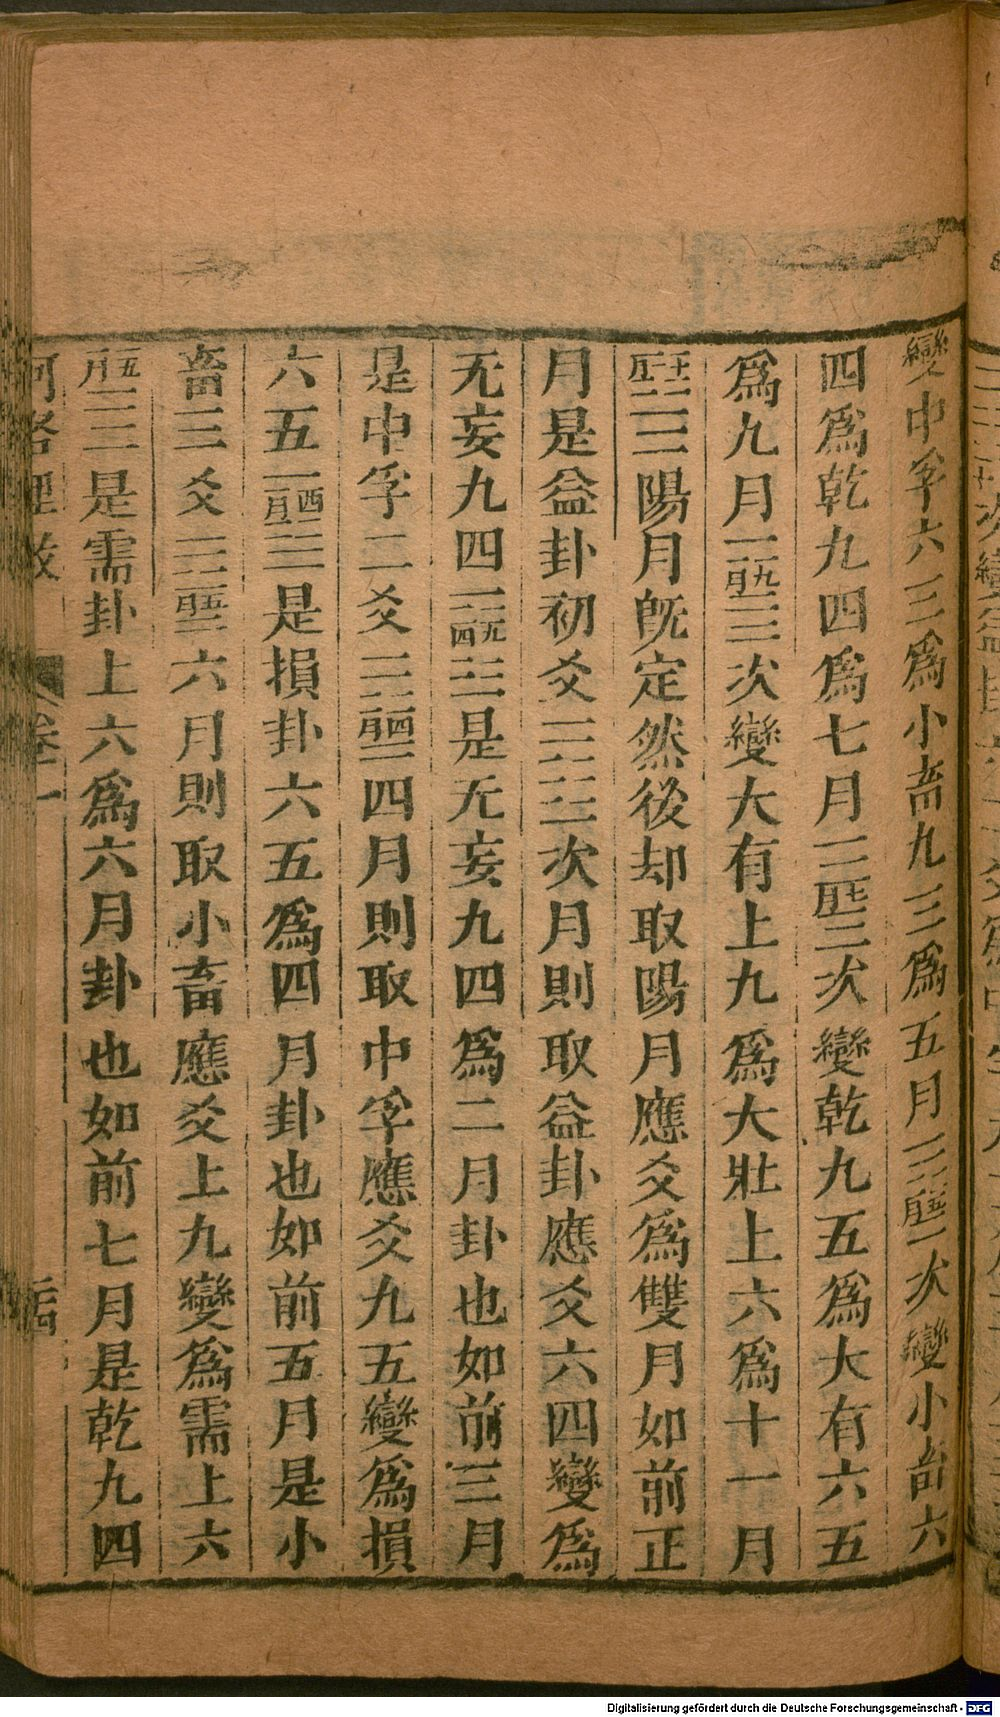 變中孚六三爲小畜九三爲五月次變小畜六
四爲乾九四爲七月次變乾九五爲大有六五
爲九月九月次變大有上九爲大壯上六爲十一月
十一月陽月既定然後却取陽月應爻爲雙月如前正
月是益卦初爻次月則取益卦應爻六四變爲
无妄九四无四是无妄九四爲二月卦也如前三月
是中孚二爻四月則取中孚應爻九五變爲損
六五是損卦六五爲四月卦也如前五月是小
畜三爻六月則取小畜應爻上九變爲需上六
五月是需卦上六爲六月卦也如前七月是乾九四
河洛理數 卷一
Digitalisierung gefördert durch die Deutsche Forschungsgemeinschaft - DFG